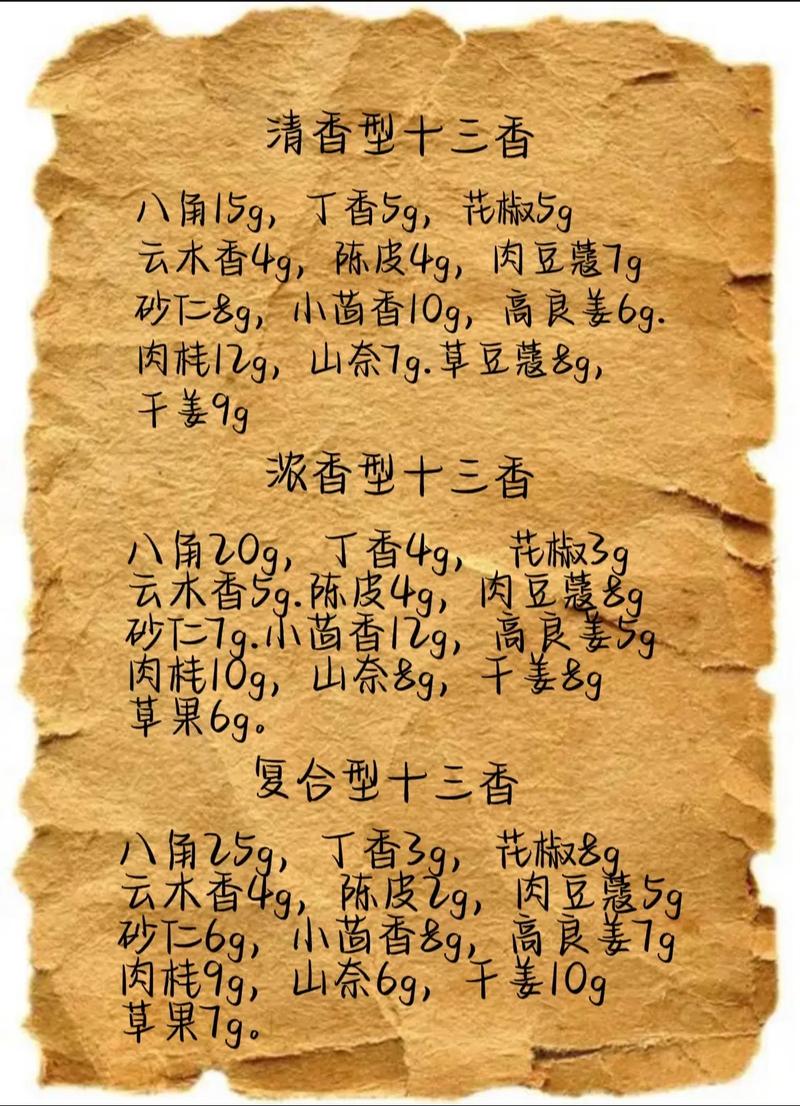 清香型十三香
八角15g，丁香5g，花椒5g
云木香4g，陈皮4g，肉豆蔻7g
砂仁8g，小茴香10g，高良姜6g.
肉桂12g，山奈7g.草豆蔻8g，
干姜9g
浓香型十三香
八角20g，丁香4g，花椒3g
云木香5g.陈皮4g，肉豆蔻8g
砂仁7g.小茴香12g，高良姜5g
肉桂10g，山奈8g，干姜8g
草果6g。
复合型十三香
八角25g，丁香3g，花椒8g
云木香4g，陈皮2g，肉豆蔻5g
砂仁6g，小茴香8g，高良姜7g
肉桂9g，山奈6g，干姜10g
草果7g。